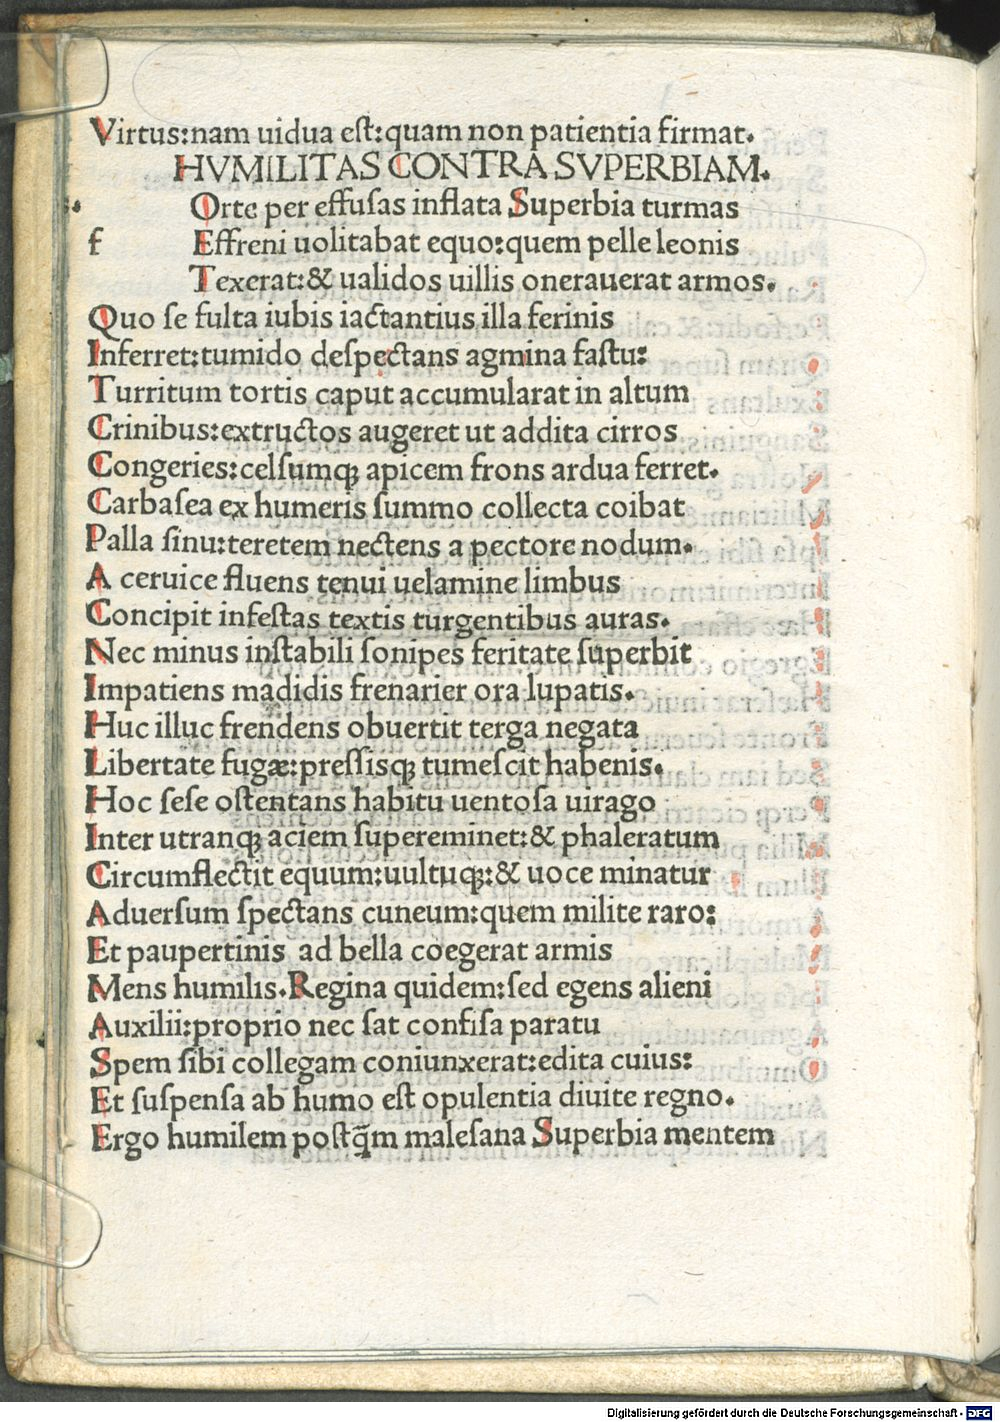 Virtus:nam uidua eſt:quam non patientia firmat.
HVMILITAS CONTRA SVPERBIAM.
Orte per effuſas inflata Superbia turmas
f Effreni uolitabat equo:quem pelle leonis
Texerat:& ualidos uillis onerauerat armos.
Quo ſe fulta iubis iactantius illa ferinis
Inferret:tumido deſpectans agmina faſtu:
Turritum tortis caput accumularat in altum
Crinibus:extructos augeret ut addita cirros
Congeries:celſumqꝫ apicem frons ardua ferret.
Carbaſea ex humeris ſummo collecta coibat
Palla ſinu:teretem nectens a pectore nodum.
A ceruice fluens tenui uelamine limbus
Concipit infeſtas textis turgentibus auras.
Nec minus inſtabili ſonipes feritate ſuperbit
Impatiens madidis frenarier ora lupatis.
Huc illuc frendens obuertit terga negata
Libertate fugæ:preſſisqꝫ tumeſcit habenis.
Hoc ſeſe oſtentans habitu uentoſa uirago
Inter utranqꝫ aciem ſupereminet:& phaleratum
Circumflectit equum:uultuqꝫ:& uoce minatur
Aduerſum ſpectans cuneum:quem milite raro:
Et paupertinis ad bella coegerat armis
Mens humilis.Regina quidem:ſed egens alieni
Auxilii:proprio nec ſat confiſa paratu
Spem ſibi collegam coniunxerat:edita cuius:
Et ſuſpenſa ab humo eſt opulentia diuite regno.
Ergo humilem poſtq̄m maleſana Superbia mentem
Digitalisierung gefördert durch die Deutsche Forschungsgemeinschaft - DFG